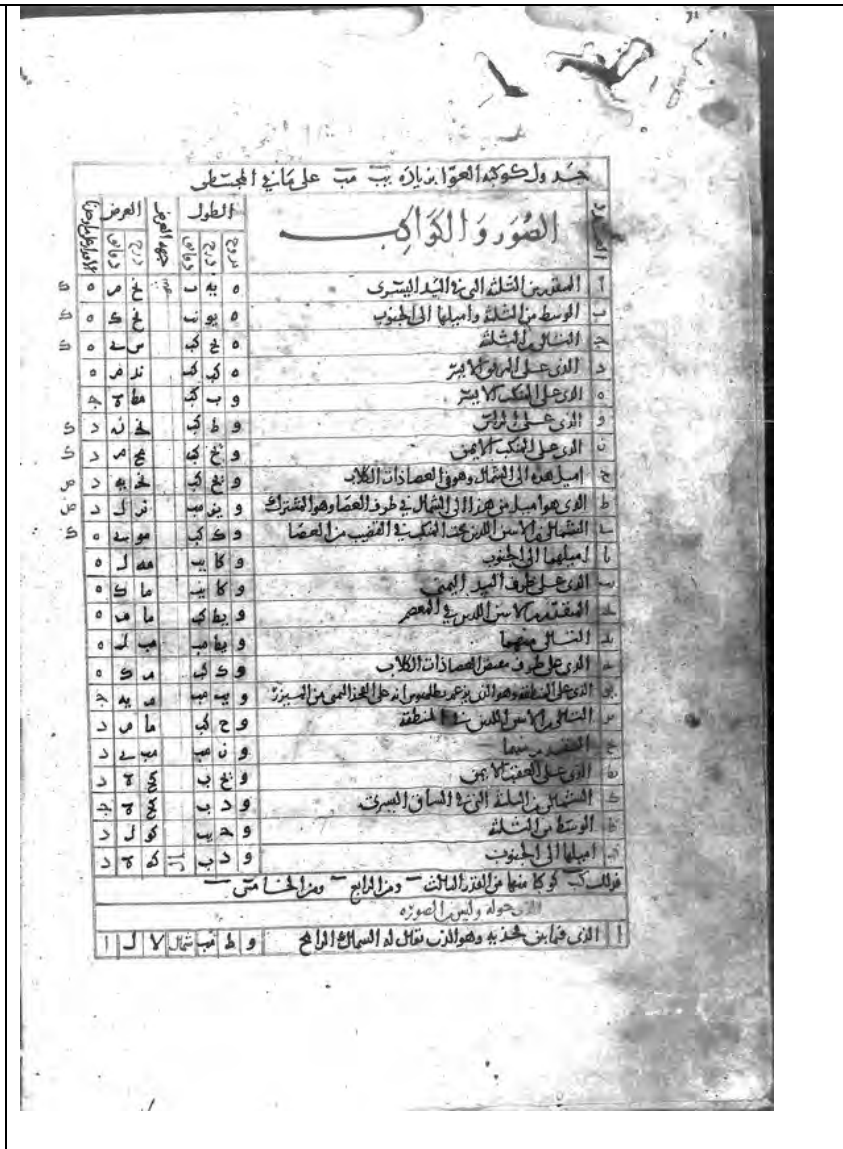 جدول كوكبه العوا بزياده يب مب على ما في المجسطى
العدد الصور والكواكب الطول جهة العرض العرض
بروج درج دقايق درج دقايق
ا المقدم من الثلثه التى فى اليد اليسرى ه يه ب نح م ه ك
ب الوسط من الثلثه واميلها الى الجنوب ه يو نب نح ك ه ك
ج التالى من الثلثه ه يح كب س ى ه ك
د الذى على المرفق الايسر ه كب كب ند م ه
ه الذى على المنكب الايسر و ب كب مط ه ج
و الذى على الراس و ط كب نج ن د ك
ز الذى على المنكب الايمن و يح كب مح م د ك
ح اميل هذه الى الشمال وهو فى العصا ذات الكلاب و يح كب نح يه د ص
ط الذى هو اميل من هذا الى الشمال فى طرف العصا وهو المشترك و يز مب نز ل د ص
ى الشمالى من الاثنين اللذين تحت المنكب فى القضيب من العصا و ك كب مو ى ه ك
يا اميلهما الى الجنوب و كا يب مه ل ه
يب الذى على طرف اليد اليمنى و كا يب ما ك ه
يج المقدم من الاثنين اللذين فى المعصم و يط كب ما م ه
يد التالى منهما و يط مب مب ل ه
يه الذى على طرف مقبض العصا ذات الكلاب و ك كب م ك ه
يو الذى على المنطقه وهو الذى يزعم بطلميوس انه على الفخذ اليمنى من المئزر و يب مب م يه ج
يز التالى من الاثنين اللذين فى المنطقه و ح كب ما م د
يح المتقدم منهما و ز مب مب ى د
يط الذى على العقب الايمن و يح ب كح ه د
ك الشمالى من الثلثه التى فى الساق اليسرى و د ب كح ه ج
كا الوسط من الثلثه و ج يب كو ل د
كب اميلها الى الجنوب و د ب كه ه د
فذلك كب كوكبا منها من القدر الثالث ومن الرابع ومن الخامس
الذى حوله وليس من الصوره
ا الذى فيما بين فخذيه وهو الذى يقال له السماك الرامح و ط مب شمال لا ل ا